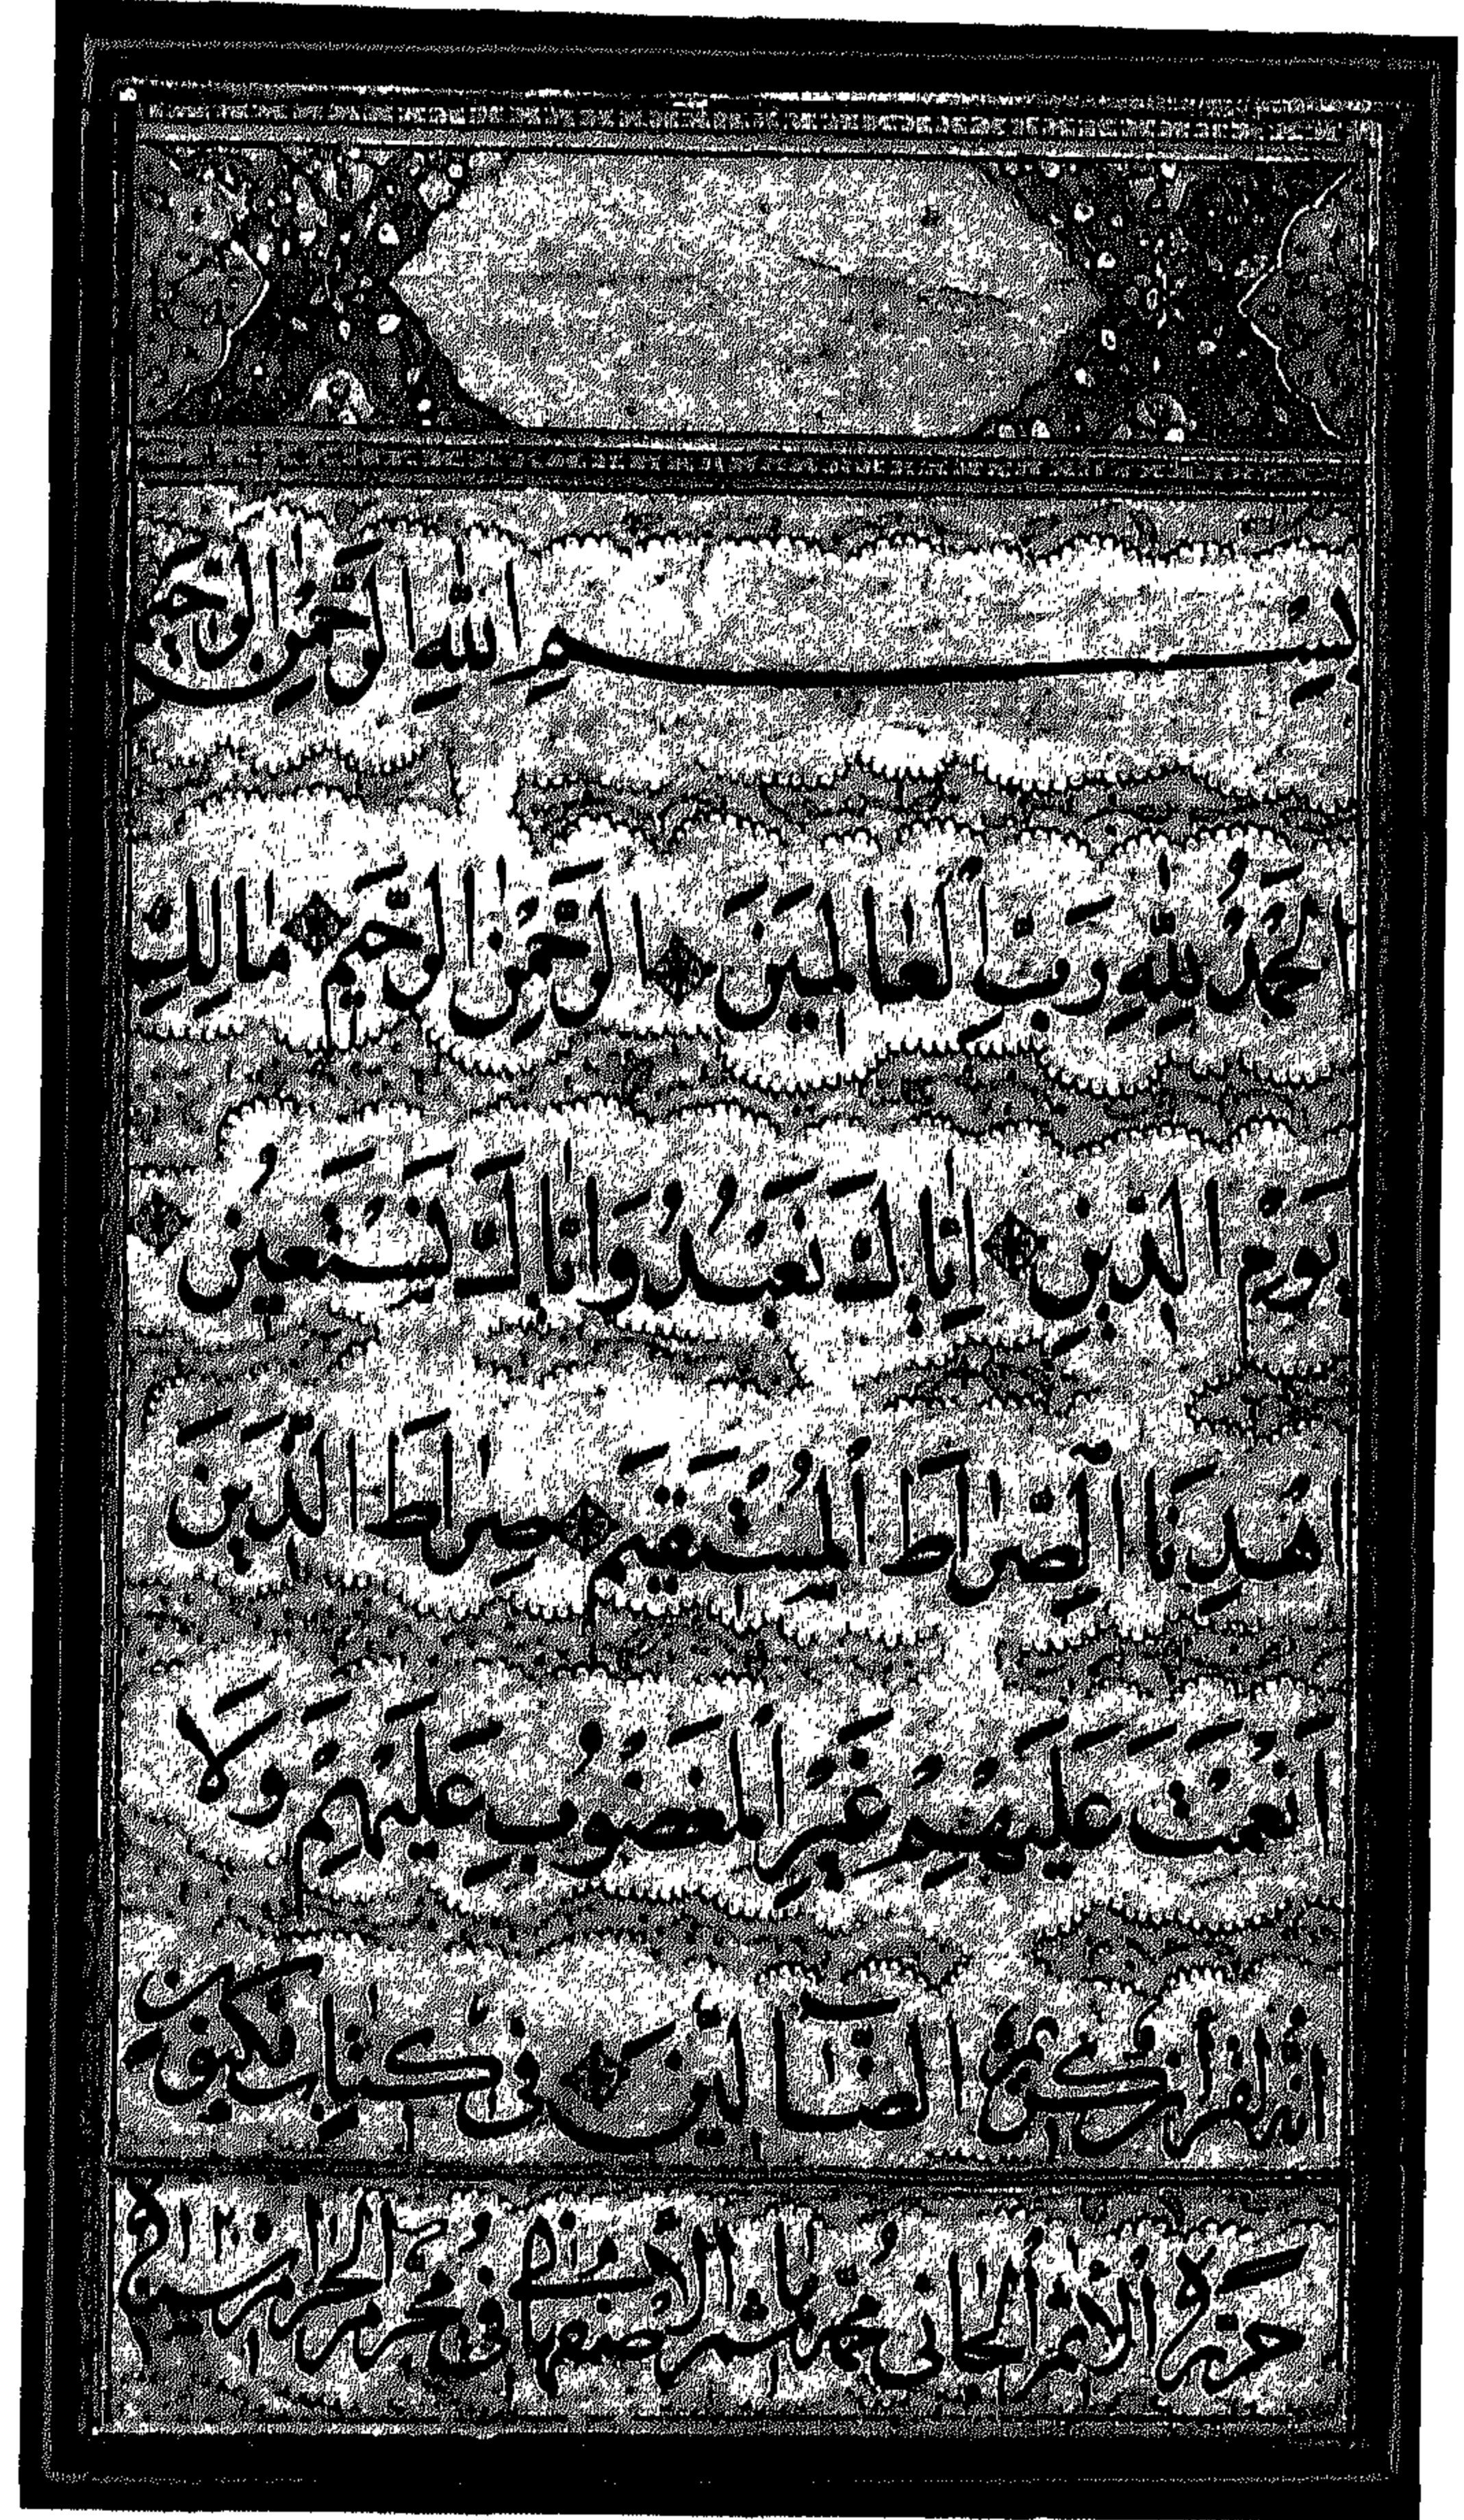 بِسْمِ اللَّهِ الرَّحْمَنِ الرَّحِيمِ
اَلْحَمْدُ لِلَّهِ رَبِّ الْعَالَمِينَ الرَّحْمٰنِ الرَّحِيمِ مَالِكِ
يَوْمِ الدِّينِ اِيَّاكَ نَعْبُدُ وَاِيَّاكَ نَسْتَعِينُ
اِهْدِنَا الصِّرَاطَ الْمُسْتَقِيمَ صِرَاطَ الَّذِينَ
اَنْعَمْتَ عَلَيْهِمْ غَيْرِ الْمَغْضُوبِ عَلَيْهِمْ وَلَا
الضَّالِّينَ انه لقرآن كريم في كتاب مكنون
الاقل الحاج محرم الحرام